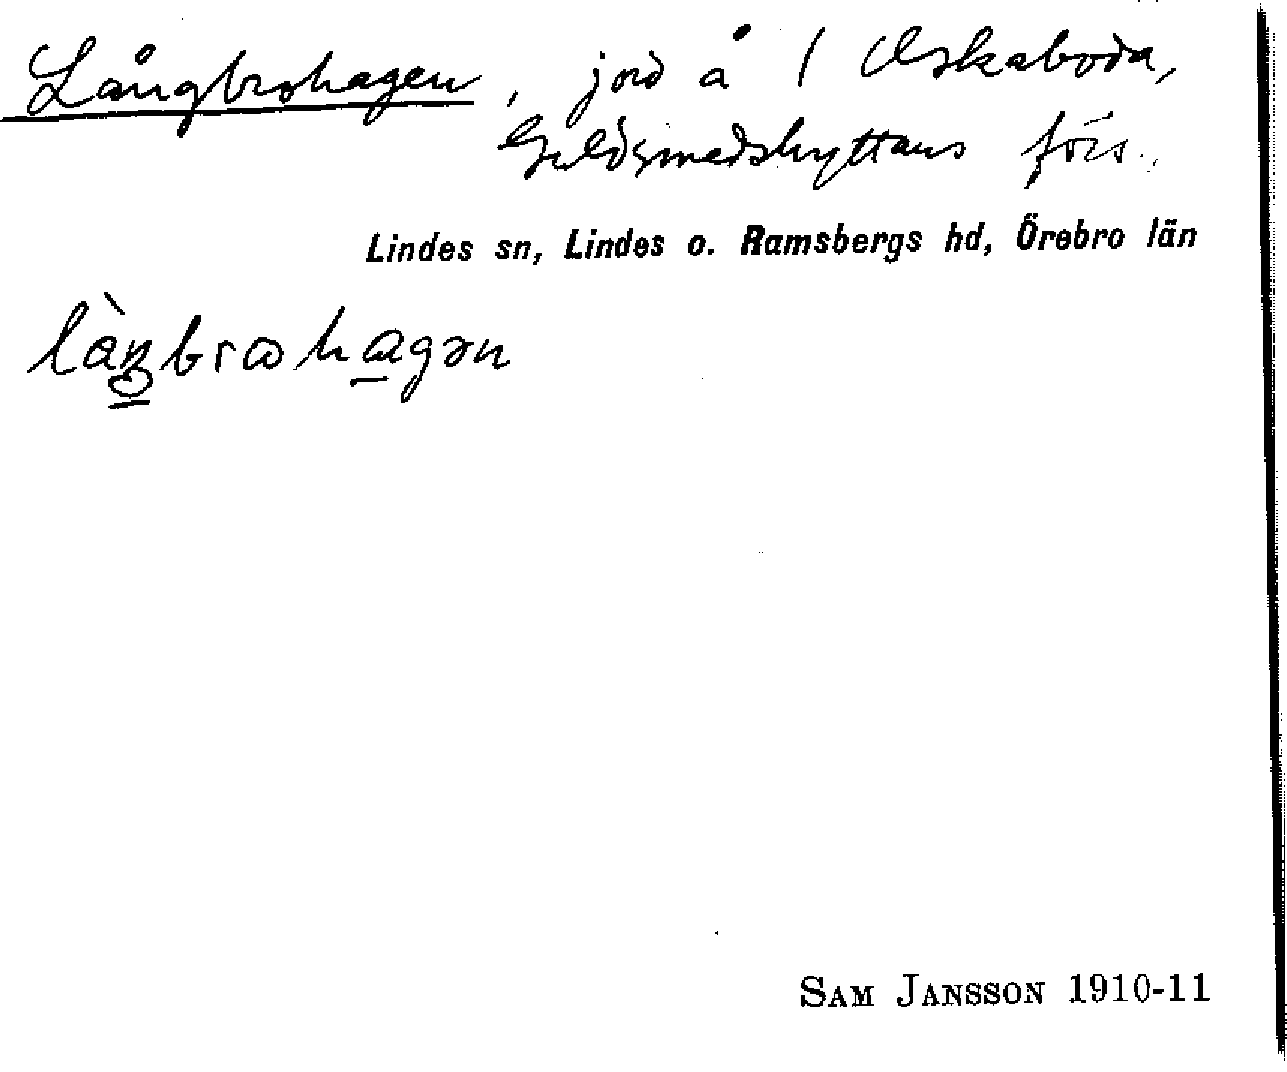 Långbrohagen, jord å 1 Oskaboda,
Guldsmedshyttans förs.
Lindes sn, Lindes o. Ramsbergs hd, Örebro län
SAM JANSSON 1910-11